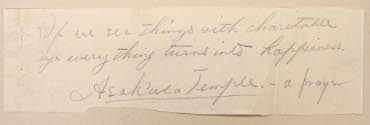 If we see things with charitable
eye everything turns into happiness.
Asakusa Temple. - a prayer